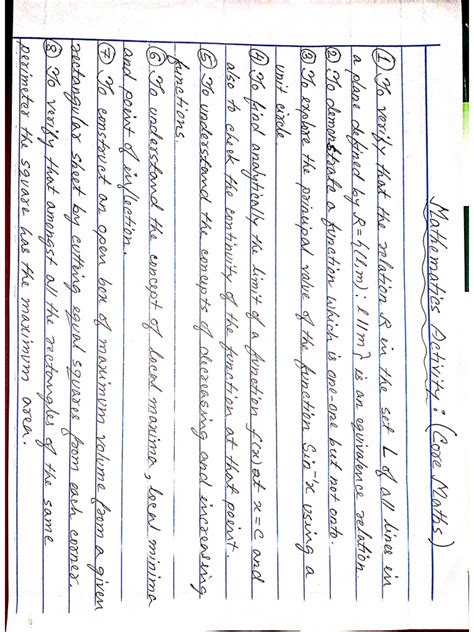 Mathematics Activity : (Core Maths)
① To verify that the relation R in the set L of all lines in
a plane defined by R = {(l, m) : l || m} is an equivalence relation.
② To demonstrate a function which is one-one but not onto.
③ To explore the principal value of the function Sin⁻¹x using a
unit circle.
④ To find analytically the limit of a function f(x) at x = c and
also to check the continuity of the function at that point.
⑤ To understand the concepts of decreasing and increasing
functions.
⑥ To understand the concept of local maxima, local minima
and point of inflection.
⑦ To construct an open box of maximum volume from a given
rectangular sheet by cutting equal squares from each corner.
⑧ To verify that amongst all the rectangles of the same
perimeter the square has the maximum area.